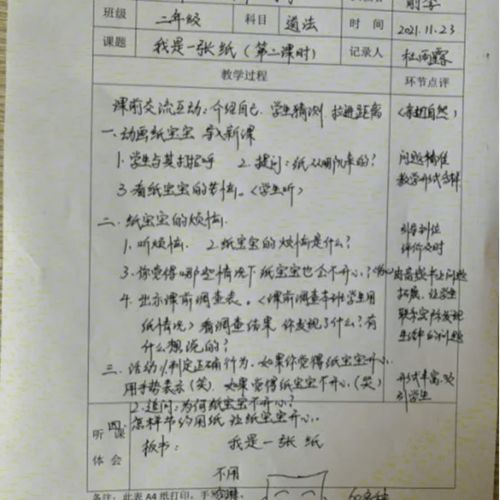 班级 二年级 科目 道法 时间 2021.11.23
课题 我是一张纸(第二课时) 记录人
教学过程 环节点评
课前交流互动:介绍自己,学生猜测,拉近距离 (亲切自然)
一、动画纸宝宝 导入新课
1.学生与其打招呼 2.提问:纸从哪儿来的? 问题精准
3.看纸宝宝的苦恼。(学生听) 教学形式多样
二、纸宝宝的烦恼.
1.听烦恼. 2.纸宝宝的烦恼是什么? 引导到位
评价及时
3.你觉得哪些情况下纸宝宝也会不开心?
4.出示课前调查表。(课前调查本班学生用 拓展,让学生
纸情况)看调查结果 你发现了什么?有 联系实际发现
什么想说的? 生活中的问题
三、活动 1.判定正确行为.如果你觉得纸宝宝开心
用手势表示(笑).如果觉得纸宝宝不开心,(哭) 形式丰富,吸
2.追问:为何纸宝宝不开心? 引学生
四、怎样节约用纸 让纸宝宝开心.
听课体会 板书: 我是一张纸
不用
备注:此表A4纸打印,手